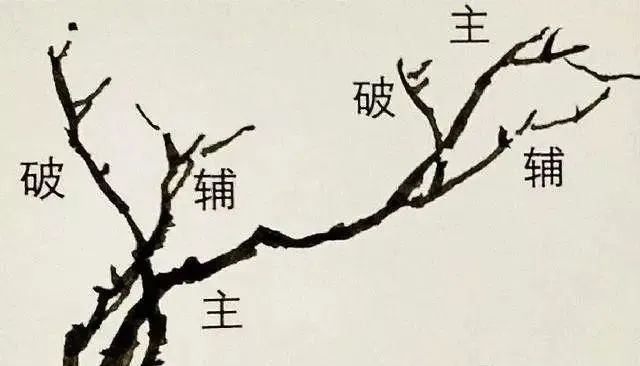 主
破
辅
破
辅
主